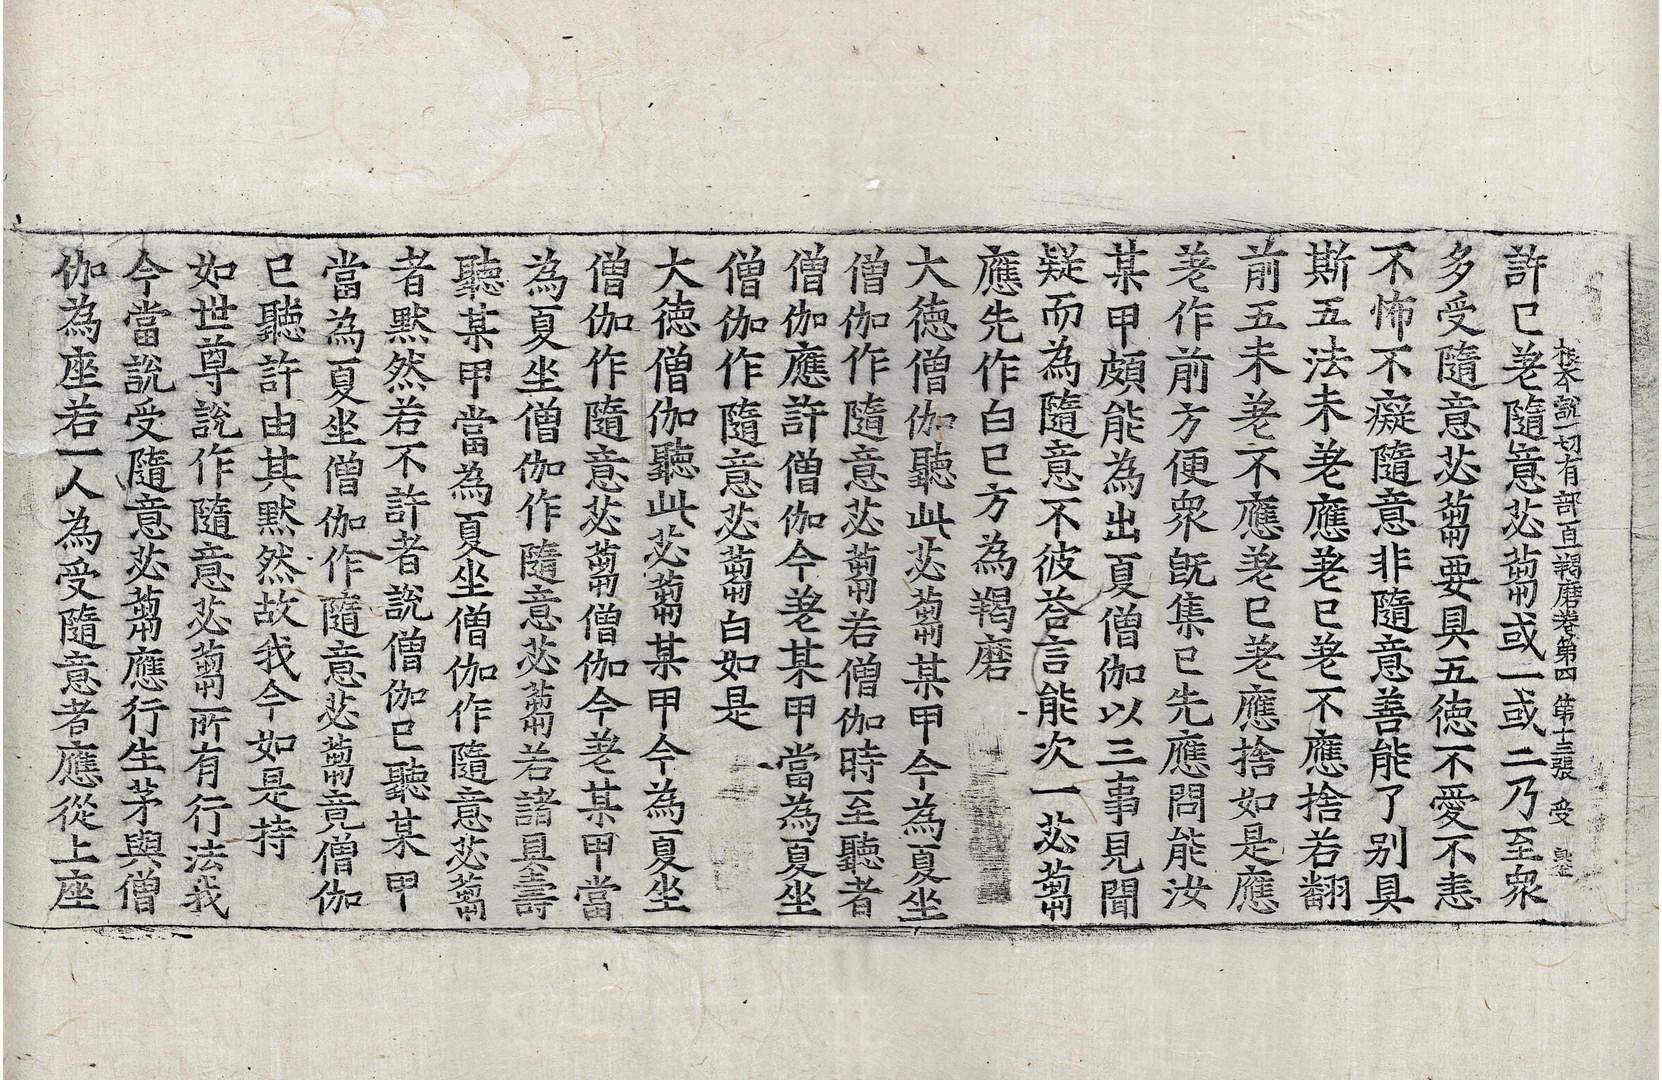 根本說一切有部百一羯磨卷第四 第十三張 受
許已差隨意苾蒭或一或二乃至衆
多受隨意苾蒭要具五德不愛不恚
不怖不癡隨意非隨意善能了別具
斯五法未差應差已差不應捨若翻
前五未差不應差已差應捨如是應
差作前方便衆旣集已先應問能汝
某甲頗能為出夏僧伽以三事見聞
疑而為隨意不彼荅言能次一苾蒭
應先作白已方為羯磨
大德僧伽聽此苾蒭某甲今為夏坐
僧伽作隨意苾蒭若僧伽時至聽者
僧伽應許僧伽今差某甲當為夏坐
僧伽作隨意苾蒭白如是
大德僧伽聽此苾蒭某甲今為夏坐
僧伽作隨意苾蒭僧伽今差某甲當
為夏坐僧伽作隨意苾蒭若諸具壽
聽某甲當為夏坐僧伽作隨意苾蒭
者默然若不許者說僧伽已聽某甲
當為夏坐僧伽作隨意苾蒭竟僧伽
已聽許由其默然故我今如是持
如世尊說作隨意苾蒭所有行法我
今當說受隨意苾蒭應行生茅與僧
伽為座若一人為受隨意者應從上座